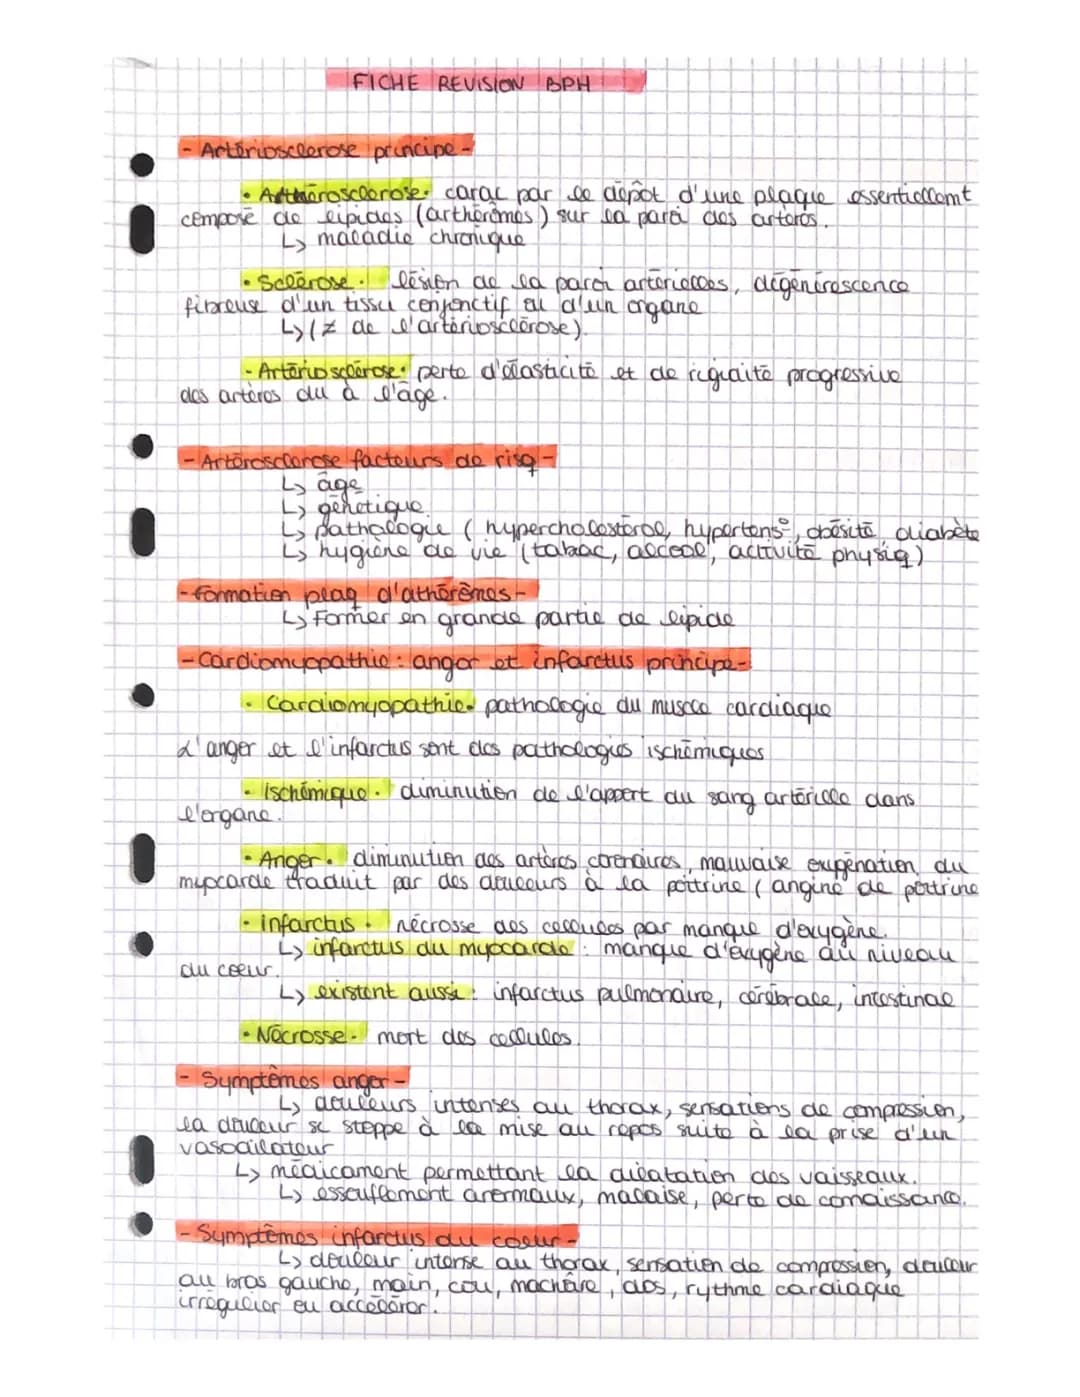 FICHE REVISION BPH
- Artériosclerose principe -
• Arthérosclerose • carac par le dépôt d'une plaque essentiellemt
composé de lipides (arthérômes) sur la paroi des artères.
↳ maladie chronique
• Sclérose • lésion de la paroi artérielles, dégénérescence
fibreuse d'un tissu conjonctif ou d'un organe
↳ (≠ de l'artériosclérose).
- Artériosclérose • perte d'élasticité et de rigidité progressive
des artères du à l'âge.
- Artérosclerose facteurs de risq -
↳ âge
↳ génétique
↳ pathologie (hypercholestérol, hypertens°, obésité, diabète
↳ hygiène de vie (tabac, alcool, activité physiq)
- formation plaq d'athérômes -
↳ Former en grande partie de lipide
- Cardiomyopathie : angor et infarctus principe -
• Cardiomyopathie • pathologie du muscle cardiaque
L'angor et l'infarctus sont des pathologies ischémiques
• Ischémique • diminution de l'apport du sang artérielle dans
l'organe.
• Angor • diminution des artères coronaires, mauvaise oxygénation du
myocarde traduit par des douleurs à la poitrine (angine de poitrine
• infarctus • nécrosse des cellules par manque d'oxygène.
↳ infarctus du myocarde : manque d'oxygène au niveau
du coeur.
↳ existent aussi : infarctus pulmonaire, cérébrale, intestinal
• Nécrosse • mort des cellules.
- Symptômes angor -
↳ douleurs intenses au thorax, sensations de compression,
la douleur se stoppe à la mise au repos suite à la prise d'un
vasodilateur
↳ médicament permettant la dilatation des vaisseaux.
↳ essoufflement anormaux, malaise, perte de connaissance.
- Symptômes infarctus du coeur -
↳ douleur intense au thorax, sensation de compression, douleur
au bras gauche, main, cou, machâre, dos, rythme cardiaque
irrégulier ou accélérer.